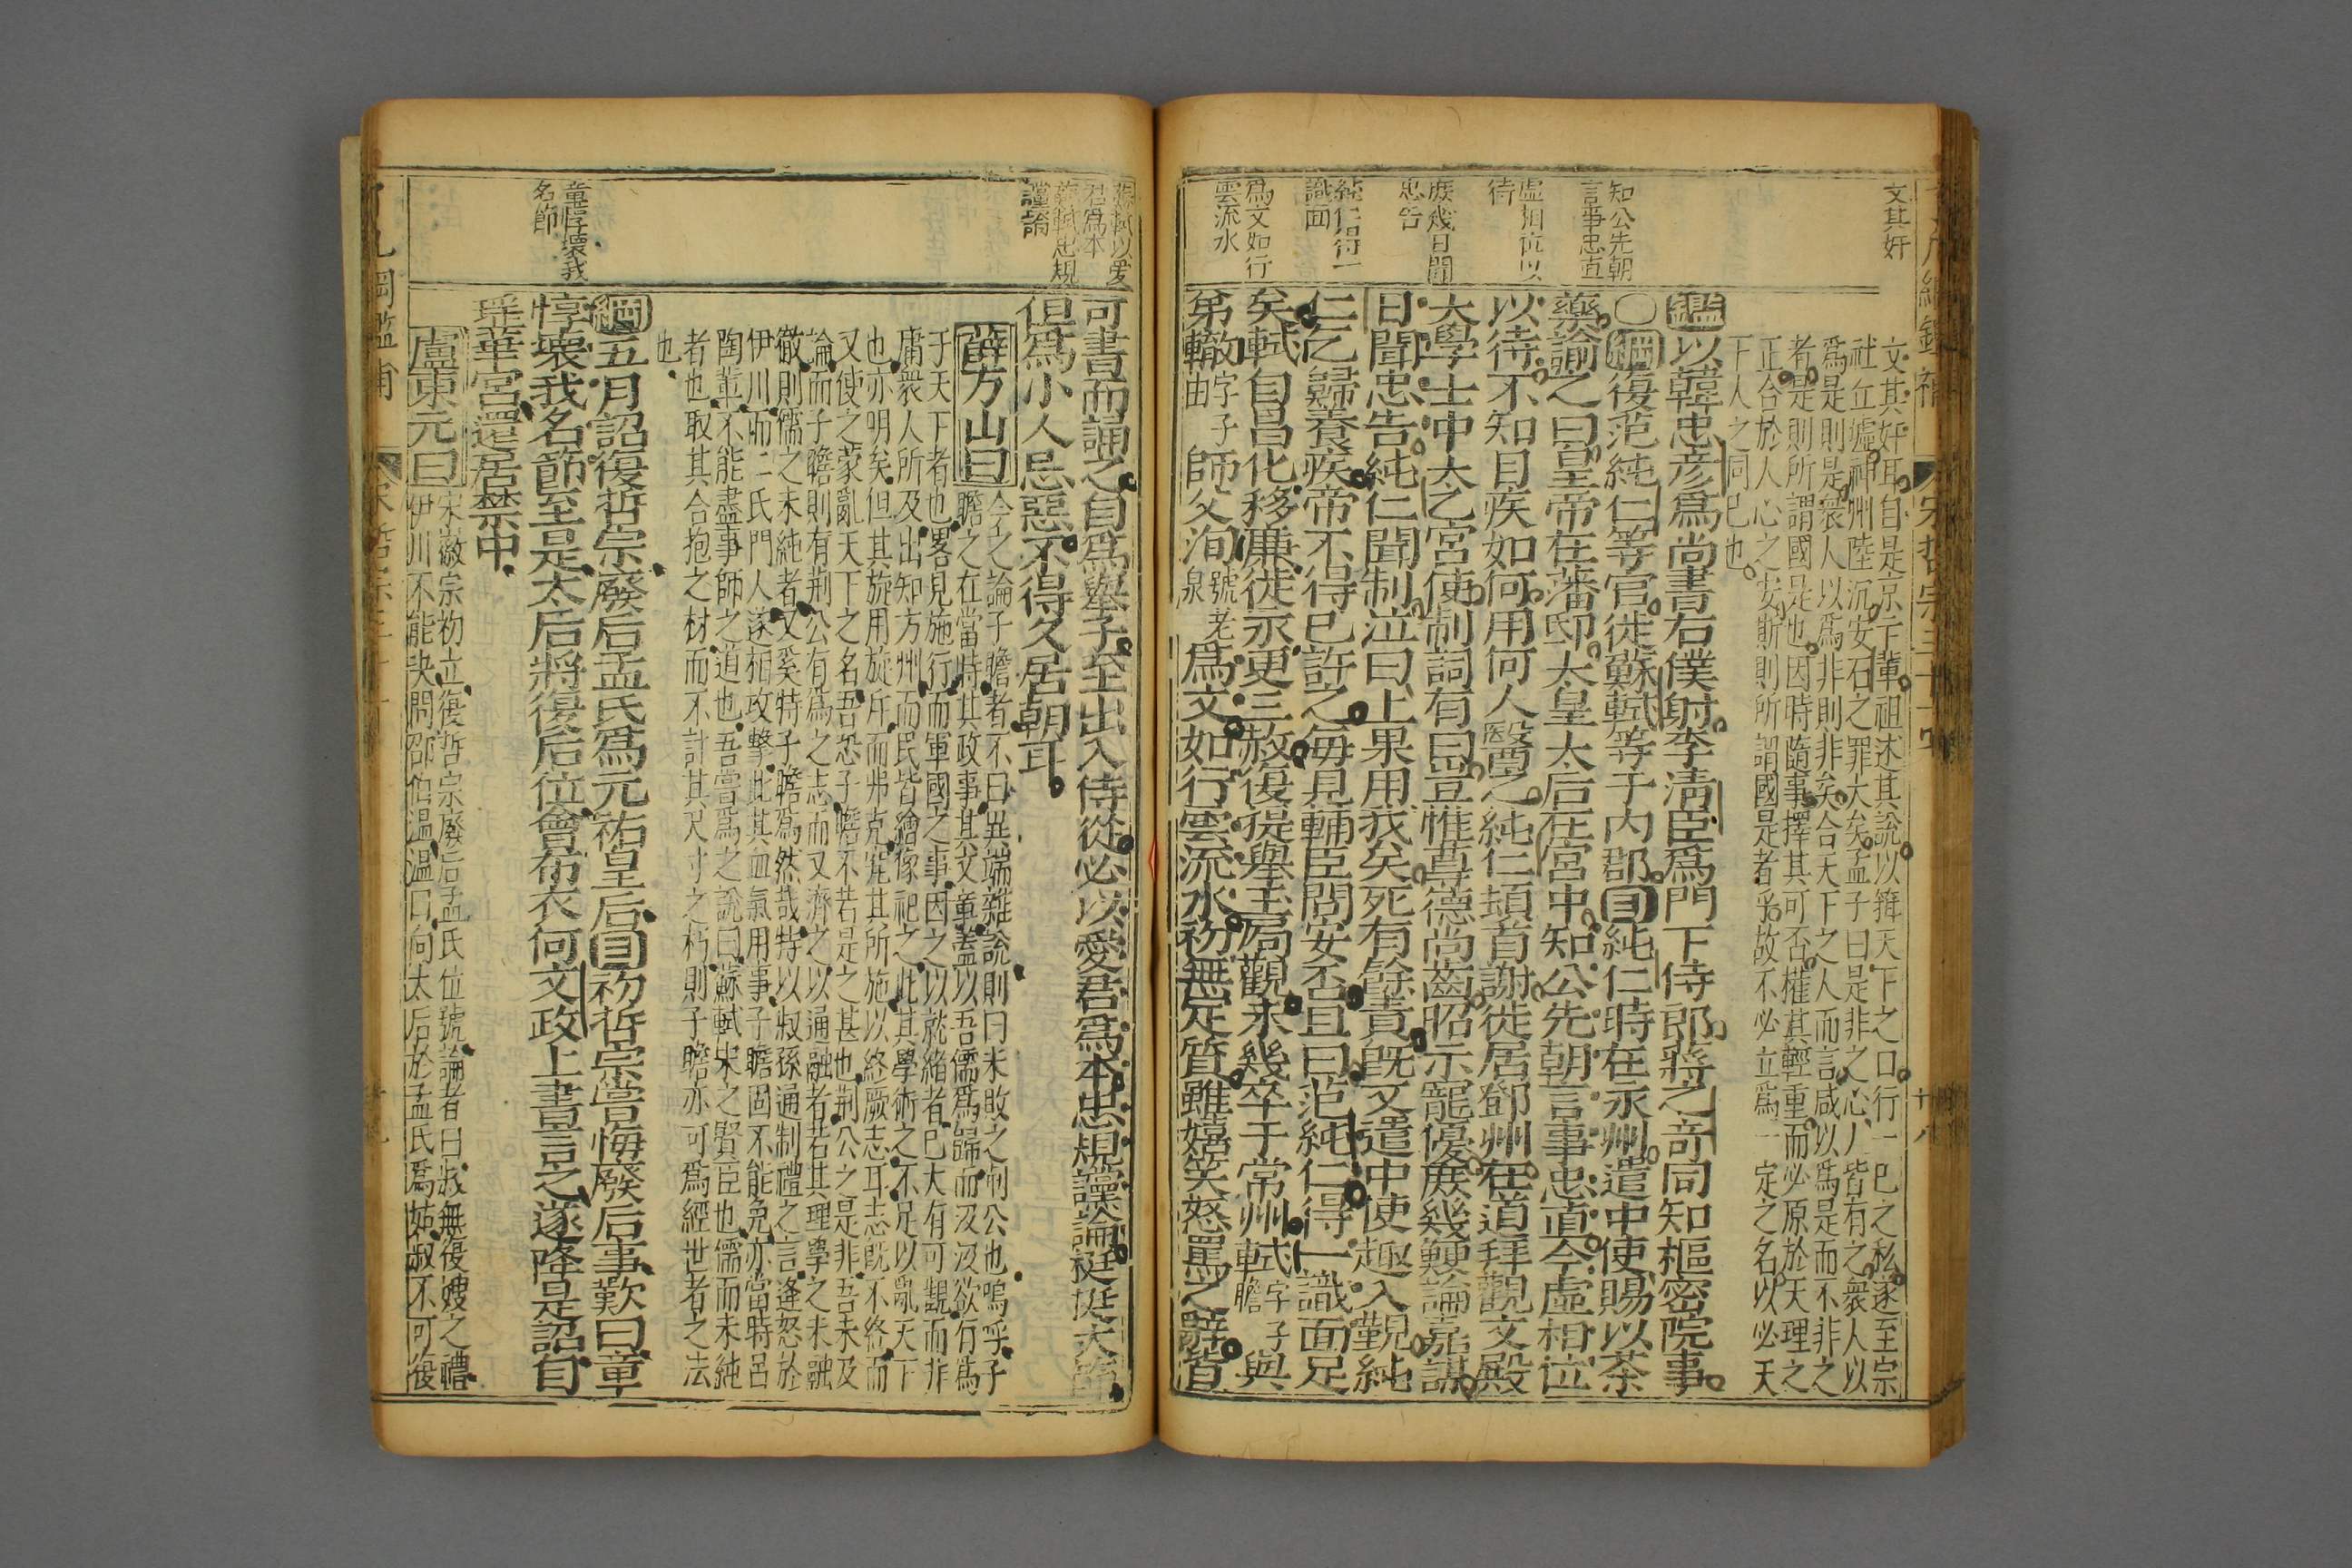 文其奸
知公先朝
言事忠直
虛相位以
待
庶幾日聞
忠告
純仁得一
識面
為文如行
雲流水
文其奸耳自是京卞輩祖述其說以箝天下之口行一己之私遂至宗
社丘墟神州陸沉安石之罪大矣孟子曰是非之心人皆有之衆人以
為是則是衆人以為非則非矣合天下之人而言咸以為是而不非之
者是則所謂國是也因時隨事擇其可否權其輕重而必原於天理之
正合於人心之安斯則所謂國是者乎故不必立為一定之名以必天
下人之同己也
鑑以韓忠彥為尚書右僕射李清臣為門下侍郎蔣之奇同知樞密院事
○綱復范純仁等官徙蘇軾等于內郡目純仁時在永州遣中使賜以茶
藥諭之曰皇帝在藩邸太皇太后在宮中知公先朝言事忠直今虛相位
以待不知目疾如何用何人醫之純仁頓首謝徙居鄧州在道拜觀文殿
大學士中太乙宮使制詞有曰豈惟尊德尚齒昭示寵優庶幾鯁論嘉謀
日聞忠告純仁聞制泣曰上果用我矣死有餘責既又遣中使趣入覲純
仁乞歸養疾帝不得已許之每見輔臣問安否且曰范純仁得一識面足
矣軾自昌化移廉徙永更三赦復提舉玉局觀未幾卒于常州軾字子瞻與
弟轍字子由師父洵號老泉為文如行雲流水初無定質雖嬉笑怒罵之辭皆
蘇軾以愛
君為本
蘇軾忠規
讜論
章惇壞我
名節
可書而誦之自為舉子至出入侍從必以愛君為本忠規讜論挺挺大節
但為小人忌惡不得久居朝耳
薛方山曰今之論子瞻者不曰異端雜說則曰未敗之荊公也嗚呼子
瞻之在當時其政事其文章蓋以吾儒為歸而汲汲欲有為
于天下者也畧見施行而軍國之事因之以就緒者已大有可觀而非
庸衆人所及出知方州而民皆繪像祀之此其學術之不足以亂天下
也亦明矣但其旋用旋斥而弗克究其所施以終厥志耳志既不終而
又使之蒙亂天下之名吾恐子瞻不若是之甚也荊公之是非吾未及
論而子瞻則有荊公有為之志而又濟之以通融者若其理學之未融
徹則儒之未純者又奚特子瞻為然哉特以叔孫通制禮之言逢怒於
伊川而二氏門人遂相攻擊此其血氣用事子瞻固不能免亦當時呂
陶輩不能盡事師之道也吾嘗為之說曰蘇軾宋之賢臣也儒而未純
者也取其合抱之材而不計其尺寸之朽則子瞻亦可為經世者之法
也
綱五月詔復哲宗廢后孟氏為元祐皇后目初哲宗嘗悔廢后事歎曰章
惇壞我名節至是太后將復后位會布衣何文政上書言之遂降是詔自
瑤華宮還居禁中
盧東元曰宋徽宗初立復哲宗廢后孟氏位號論者曰叔無復嫂之禮
伊川不能決問邵伯溫溫曰向太后於孟氏為姑叔不可復